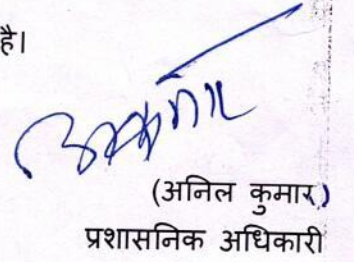 है।
(अनिल कुमार)
प्रशासनिक अधिकारी